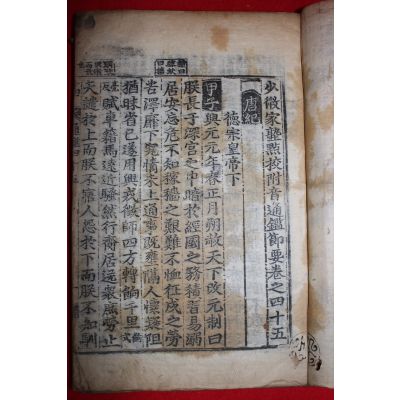 少微家塾點校附音通鑑節要卷之四十五
唐紀
德宗皇帝下
甲子興元元年春正月朔赦天下改元制曰
朕長于深宮之中暗於經國之務積習易溺
居安忘危不知稼穡之艱難不恤征戍之勞
苦澤靡下究情未上通事既壅隔人懷疑阻
猶昧省己遂用興戎徵師四方轉餉千里
賦車籍馬遠近騷然行齎居送衆庶勞止
天譴於上而朕不寤人怨於下而朕不知馴